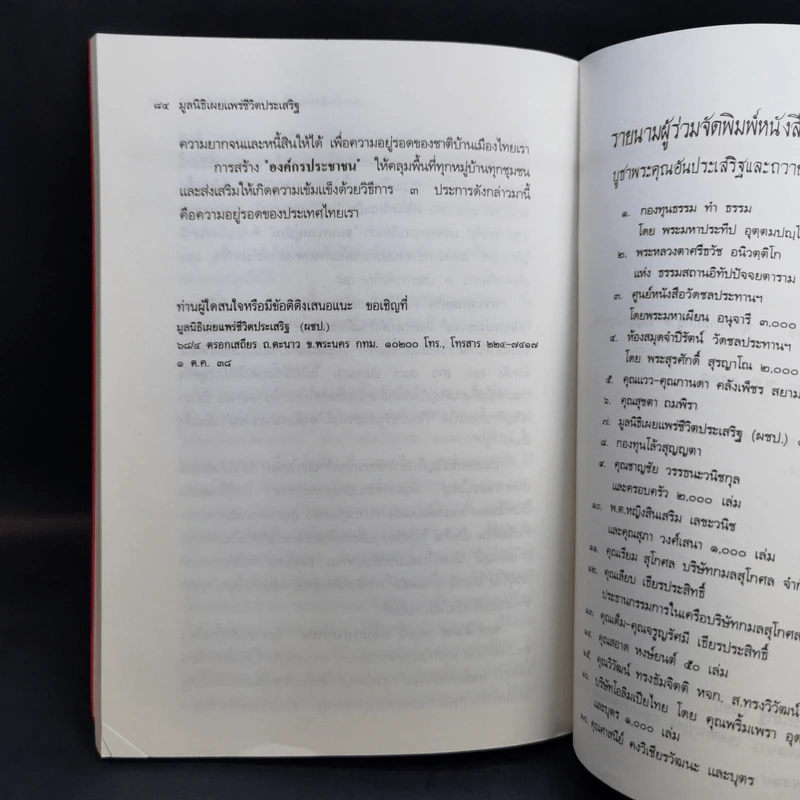 ๘๔ มูลนิธิเผยแพร่ชีวิตประเสริฐ
ความยากจนและหนี้สินให้ได้ เพื่อความอยู่รอดของชาติบ้านเมืองไทยเรา
การสร้าง "องค์กรประชาชน" ให้คลุมพื้นที่ทุกหมู่บ้านทุกชุมชน
และส่งเสริมให้เกิดความเข้มแข็งด้วยวิธีการ ๓ ประการดังกล่าวมานี้
คือความอยู่รอดของประเทศไทยเรา
ท่านผู้ใดสนใจหรือมีข้อติติงเสนอแนะ ขอเชิญที่
มูลนิธิเผยแพร่ชีวิตประเสริฐ (ผชป.)
๖๘/๔ ตรอกเสถียร ถ.ตะนาว ข.พระนคร กทม. ๑๐๒๐๐ โทร., โทรสาร ๒๒๔-๗๔๑๗
๑ ต.ค. ๓๘
รายนามผู้ร่วมจัดพิมพ์หนังสื
บูชาพระคุณอันประเสริฐและถวาย
๑. กองทุนธรรม ทำ ธรรม
โดย พระมหาประทีป อุตฺตมปญฺโ
๒. พระหลวงตาศรีธวัช อนิวตฺติโก
แห่ง ธรรมสถานอิทัปปัจจยตาราม
๓. ศูนย์หนังสือวัดชลประทานฯ
โดยพระมหาเผียน อนุจารี ๓,๐๐๐
๔. ห้องสมุดจำปีรัตน์ วัดชลประทานฯ
โดย พระสุรศักดิ์ สุรญาโณ ๒,๐๐๐
๕. คุณแวว-คุณกานดา คลังเพ็ชร สยาม
๖. คุณสุชตา ถมพิรา
๗. มูลนิธิเผยแพร่ชีวิตประเสริฐ (ผชป.)
๘. กองทุนโล้วสุญญตา
๙. คุณชาญชัย วรรธนะวนิชกุล
และครอบครัว ๒,๐๐๐ เล่ม
๑๐. พ.ต.หญิงสินเสริม เลขะวนิช
และคุณสุภา วงศ์เสนา ๑,๐๐๐ เล่ม
๑๑. คุณเรียม สุโกศล บริษัทกมลสุโกศล จำกั
๑๒. คุณเลียบ เธียรประสิทธิ์
ประธานกรรมการในเครือบริษัทกมลสุโกศล
๑๓. คุณเต็ม-คุณจรูญรัศมี เธียรประสิทธิ์
๑๔. คุณสอาด หงษ์ยนต์ ๕๐ เล่ม
๑๕. คุณวิรัฒน์ ทรงธัมจิตติ หจก. ส.ทรงวิวัฒน์
๑๖. บริษัทโอลิมเปียไทย โดย คุณพริ้มเพรา อุต
และบุตร ๑,๐๐๐ เล่ม
๑๗. คุณศาสนีย์ คงวิเชียรวัฒนะ และบุตร